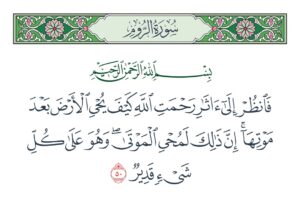 سُورَةُ الرُّومِ
بِسْمِ اللَّهِ الرَّحْمَٰنِ الرَّحِيمِ
فَٱنظُرْ إِلَىٰٓ ءَاثَٰرِ رَحْمَتِ ٱللَّهِ كَيْفَ يُحْىِ ٱلْأَرْضَ بَعْدَ
مَوْتِهَآ ۚ إِنَّ ذَٰلِكَ لَمُحْىِ ٱلْمَوْتَىٰ ۖ وَهُوَ عَلَىٰ كُلِّ
شَىْءٍ قَدِيرٌ ٥٠